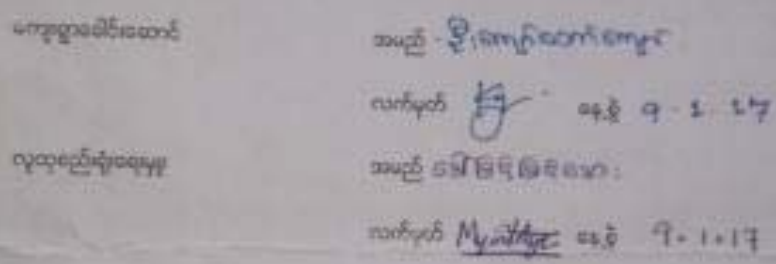 ကျေးရွာခေါင်းဆောင် အမည် - ဦးကျော်ဇော်ကျော်
လက်မှတ် နေ့စွဲ 9.1.17
လူထုစည်းရုံးရေးမှူး အမည် ဒေါ်မြင့်မြင့်အေး
လက်မှတ် နေ့စွဲ 9.1.17